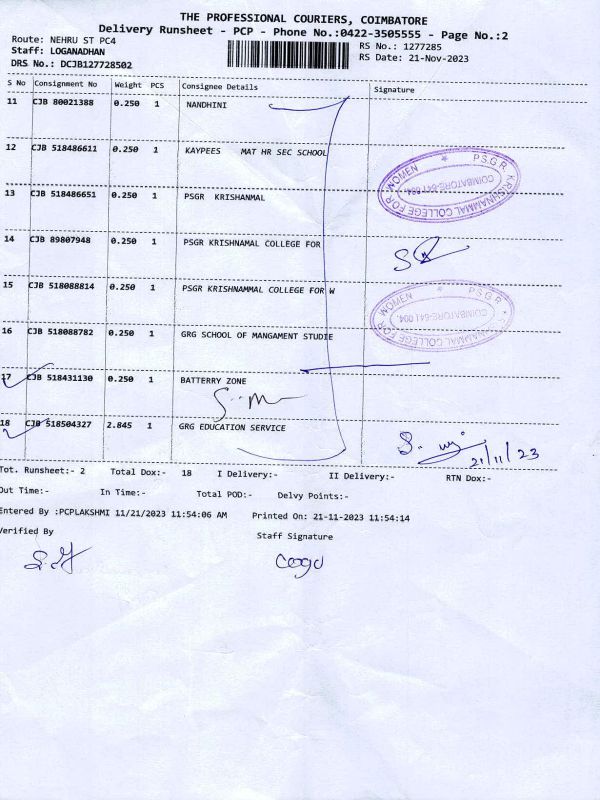 THE PROFESSIONAL COURIERS, COIMBATORE
Delivery Runsheet - PCP - Phone No.:0422-3505555 - Page No.:2
Route: NEHRU ST PC4
Staff: LOGANADHAN
DRS No.: DCJB127728502
RS No.: 1277285
RS Date: 21-Nov-2023
S No Consignment No Weight PCS Consignee Details Signature
11 CJB 80021388 0.250 1 NANDHINI
12 CJB 518486611 0.250 1 KAYPEES MAT HR SEC SCHOOL
PSGR KRISHNAMMAL COLLEGE FOR WOMEN
COIMBATORE-641 004.
13 CJB 518486651 0.250 1 PSGR KRISHANMAL
14 CJB 89807948 0.250 1 PSGR KRISHNAMAL COLLEGE FOR
15 CJB 518088814 0.250 1 PSGR KRISHNAMMAL COLLEGE FOR W
PSGR COLLEGE FOR WOMEN
COIMBATORE-641 004.
16 CJB 518088782 0.250 1 GRG SCHOOL OF MANGAMENT STUDIE
17 CJB 518431130 0.250 1 BATTERRY ZONE
18 CJB 518504327 2.845 1 GRG EDUCATION SERVICE
21/11/23
Tot. Runsheet:- 2 Total Dox:- 18 I Delivery:- II Delivery:- RTN Dox:-
Out Time:- In Time:- Total POD:- Delvy Points:-
Entered By :PCPLAKSHMI 11/21/2023 11:54:06 AM Printed On: 21-11-2023 11:54:14
Verified By Staff Signature